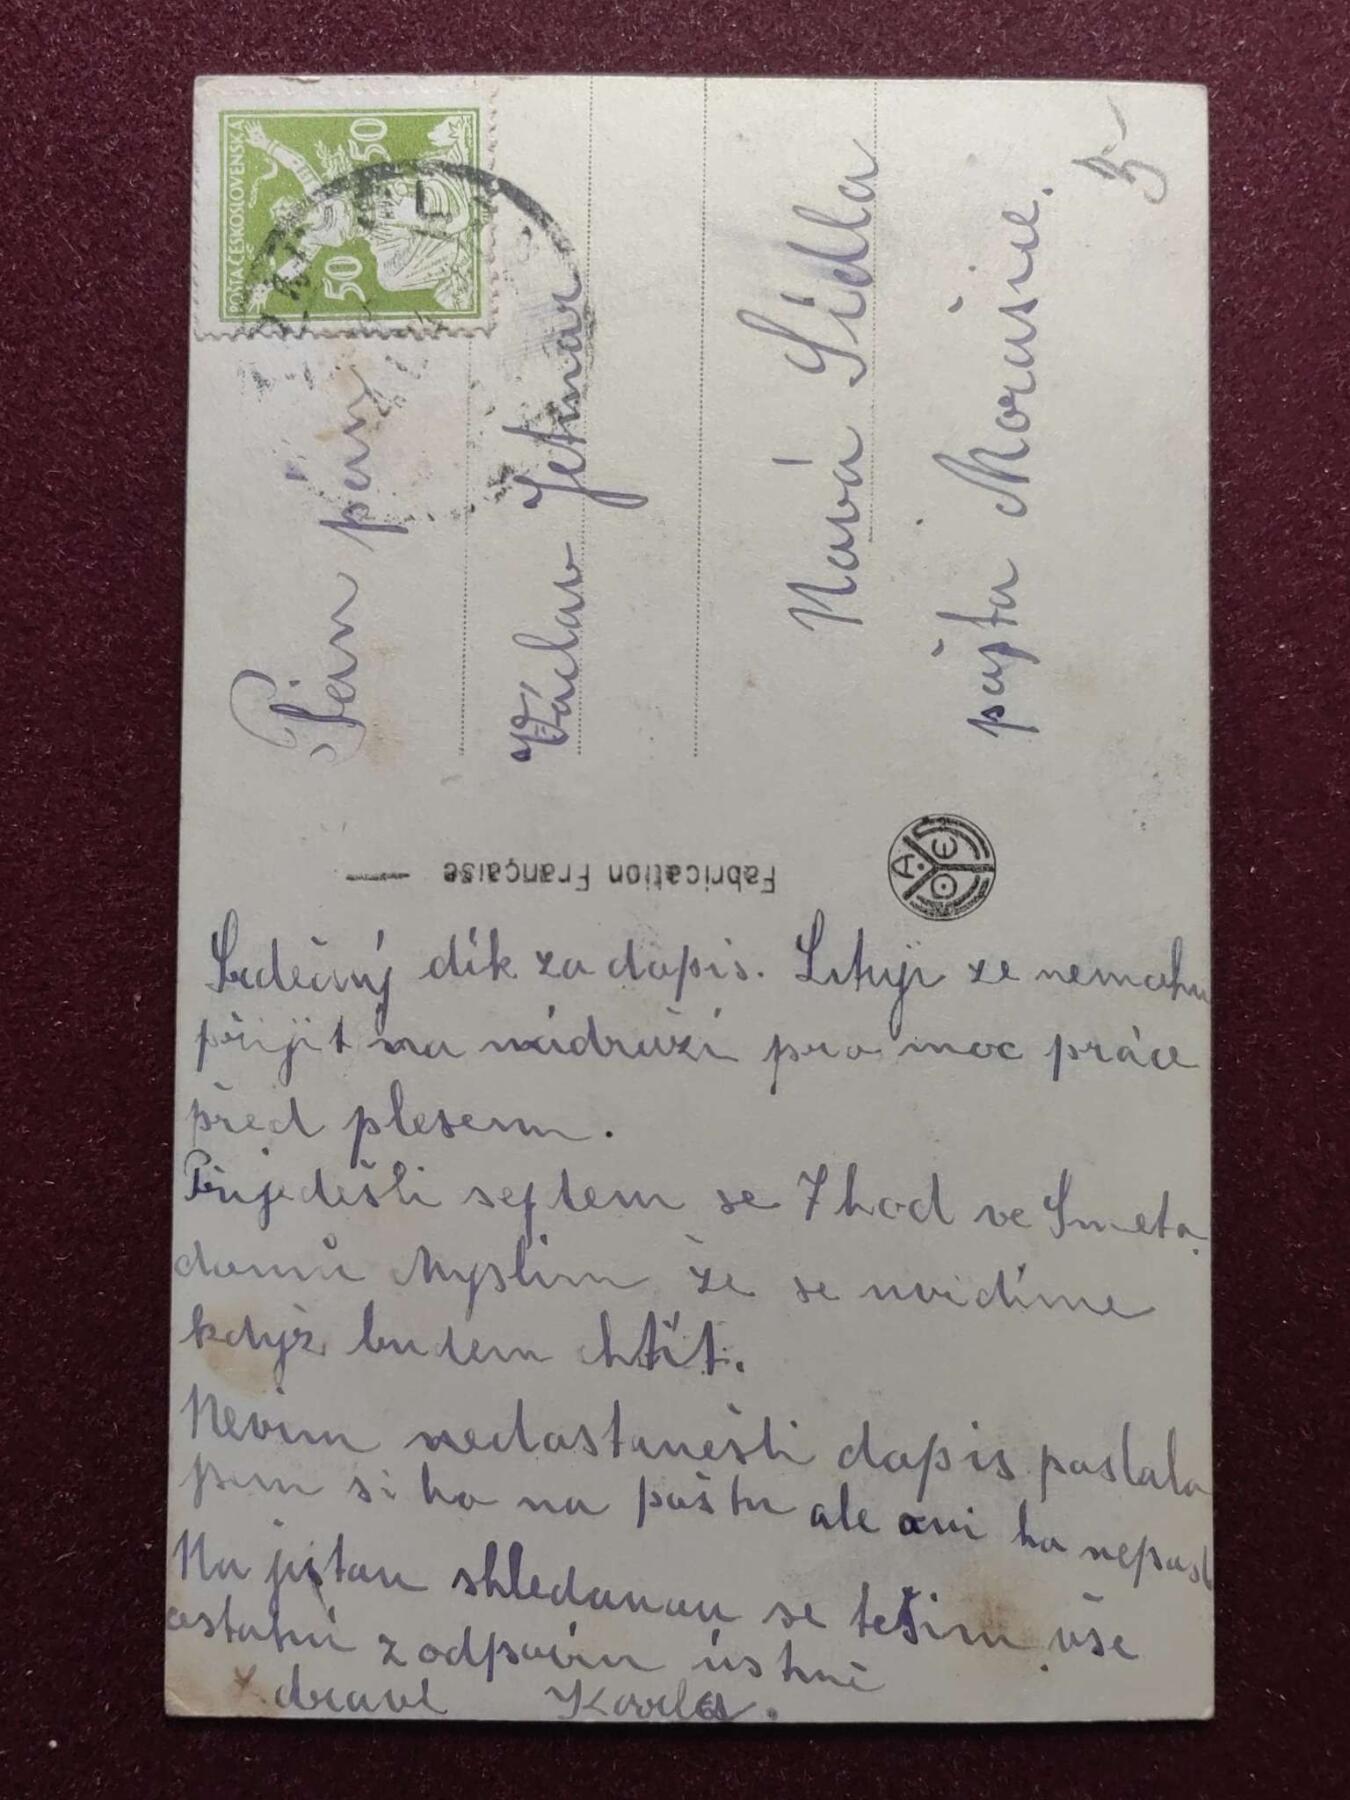 POŠTA ČESKOSLOVENSKÁ
50 50
Pan pan
Václav Jetmar
Nová Sídla
pošta Morašice.
Fabrication Française
A
Srdečný dík za dopis. Lituji ze nemohu
přijít na nádraží pro moc práce
před plesem.
Přijedešli septem se 7 hod ve Smeta.
domů Myslim že se uvidíme
když budem chtít.
Nevim nedostanešli dopis poslala
jsem si ho na poštu ale oni ho neposl
Na jistou shledanou se tešim vše
ostatní zodpovím ústně
Karla.